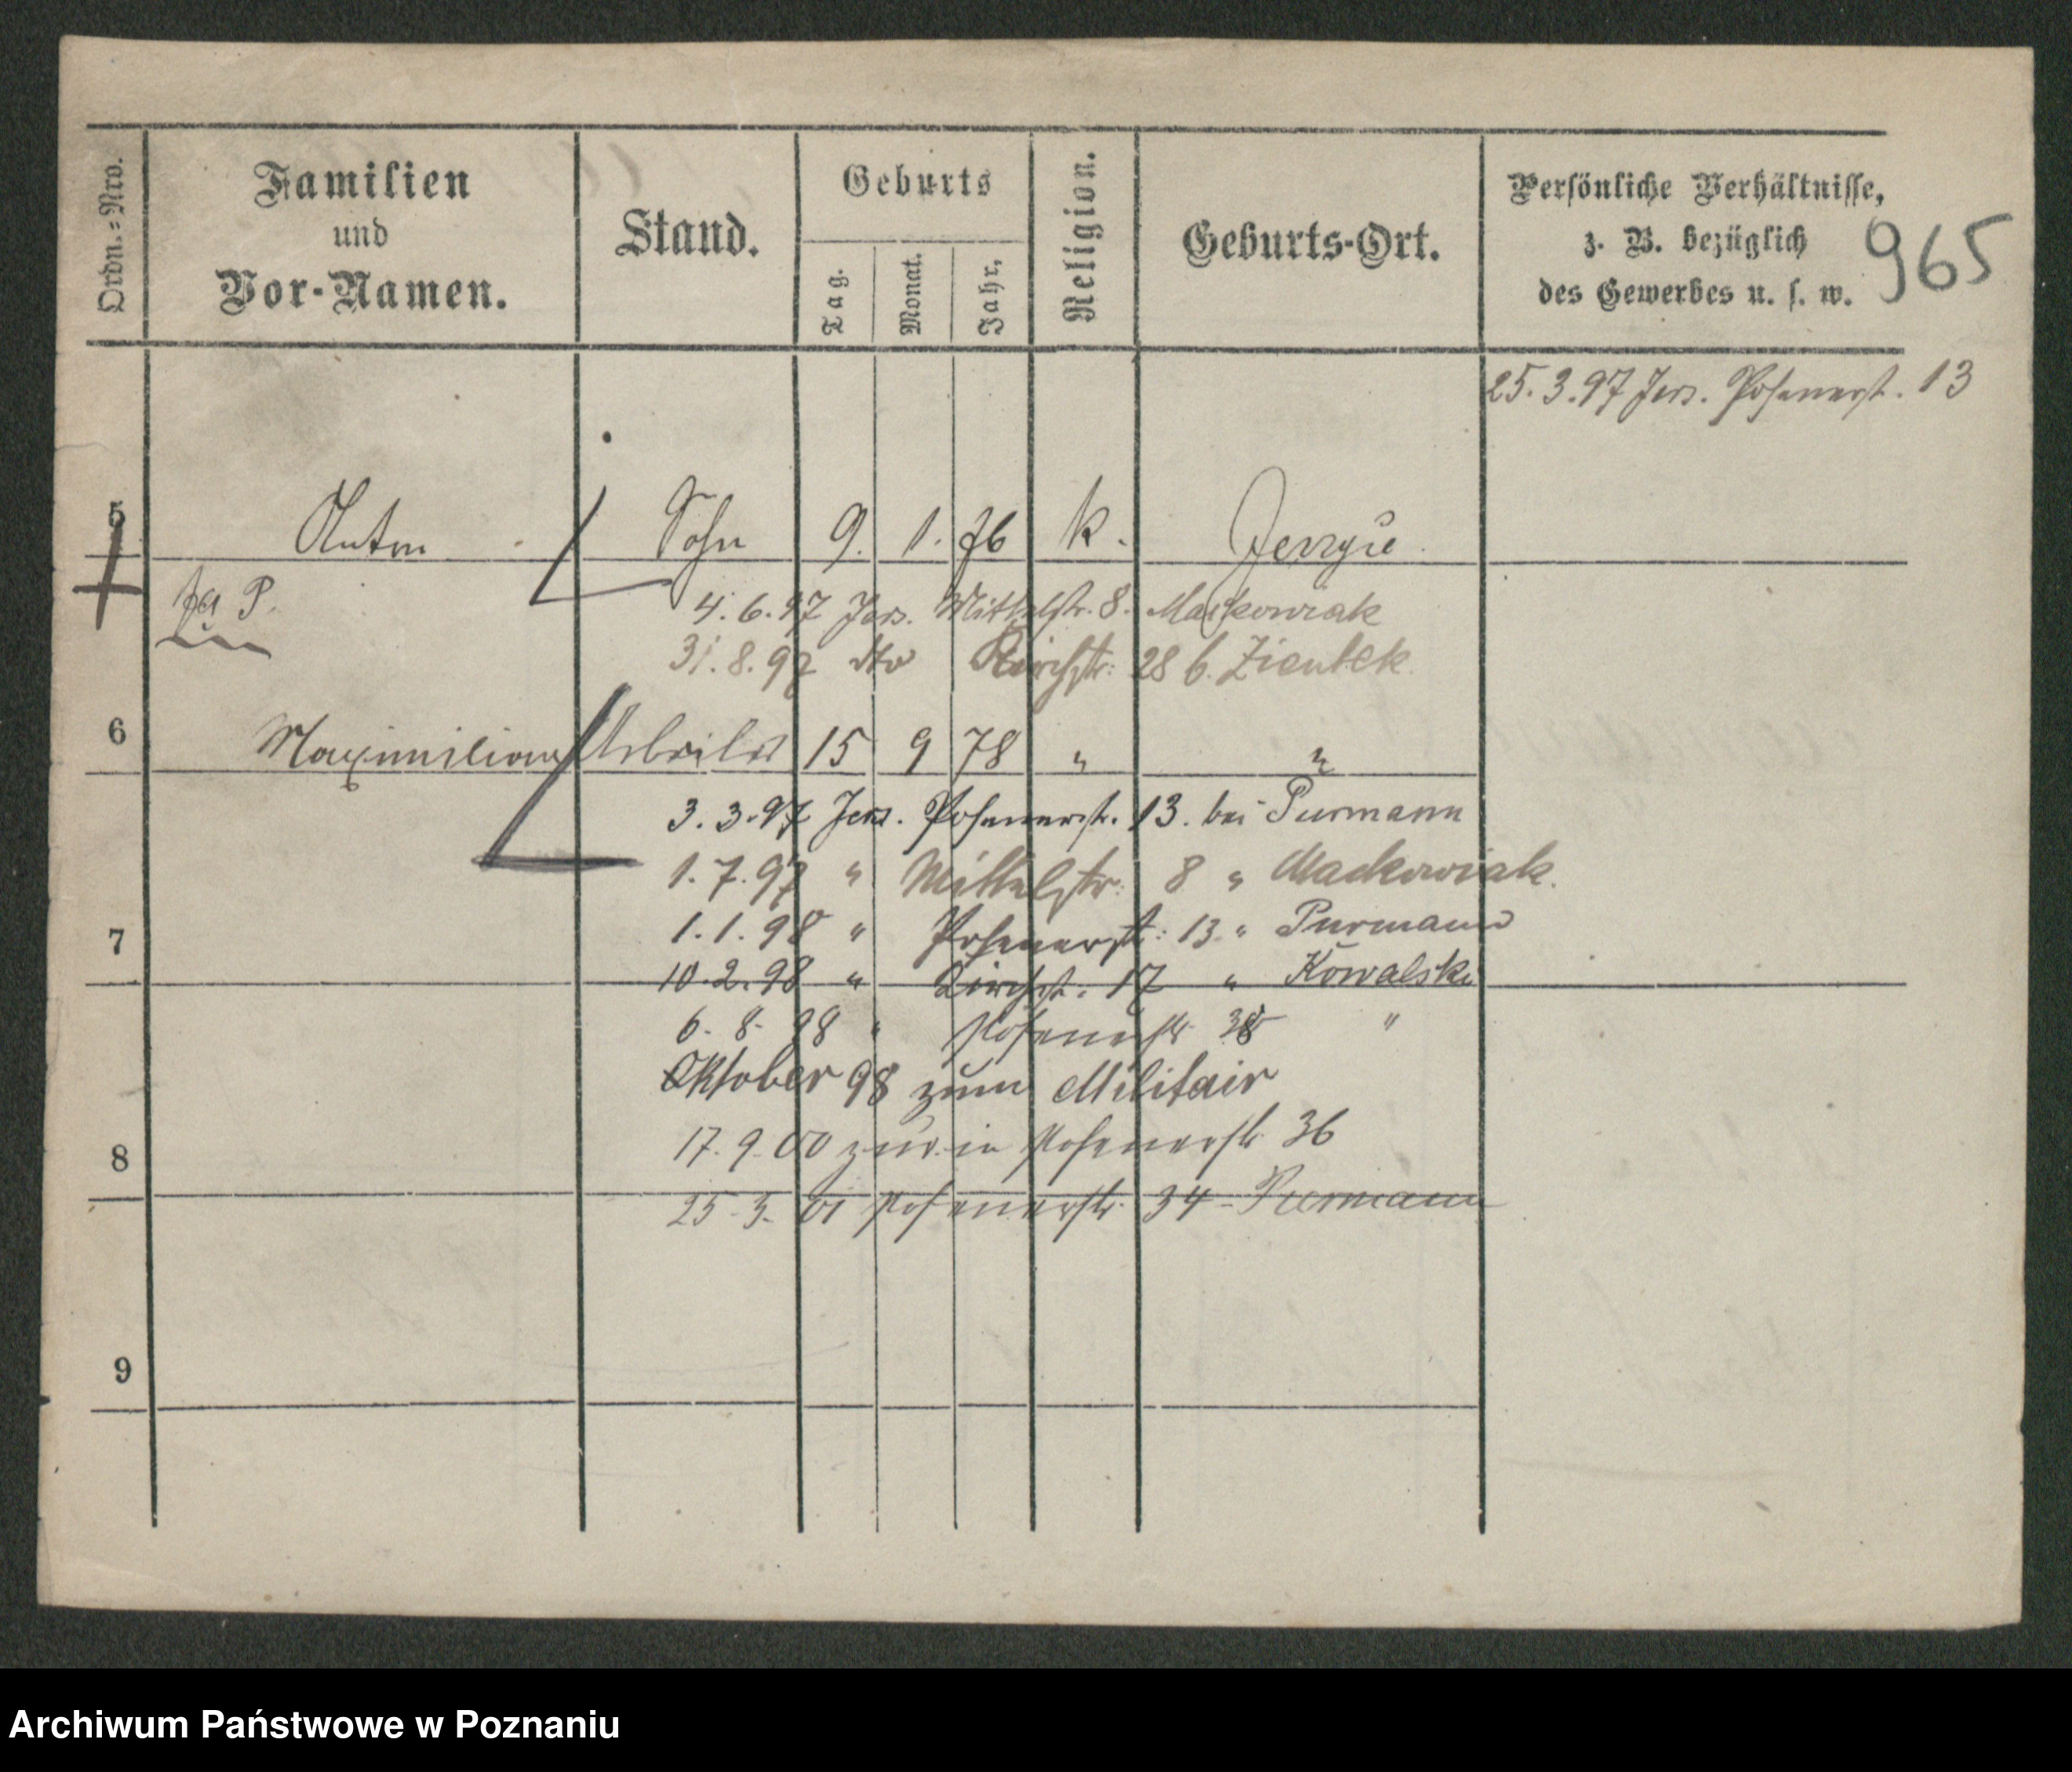 Ordn.=Nro.
Familien
und
Vor-Namen.
Stand.
Geburts
Tag.
Monat.
Jahr.
Religion.
Geburts-Ort.
Persönliche Verhältnisse,
z. B. bezüglich
des Gewerbes u. s. w.
965
25.3.97 Jers. Posenerst. 13
5 Anton Sohn 9. 1. 76 k.
4.6.97 Jers. Mittelstr. 8. Mackowiak
31.8.97 dto Kirchstr. 28 b. Zientek
6 Maximilian Arbeiter 15 9 78 " "
3.3.97 Jers. Posenerstr. 13. bei Purmann
1.7.97 " Mittelstr: 8 " Mackowiak.
7
1.1.98 " Posenerst: 13 " Purmann
10.2.98 " Kirchst. 17 " Kowalski
6.8.98 " Posenerstr. 38 "
Oktober 98 zum Militair
8
17.9.00 zur. in Posenerstr. 36
25.3.01 Posenerstr. 34 - Purmann
9
Archiwum Państwowe w Poznaniu